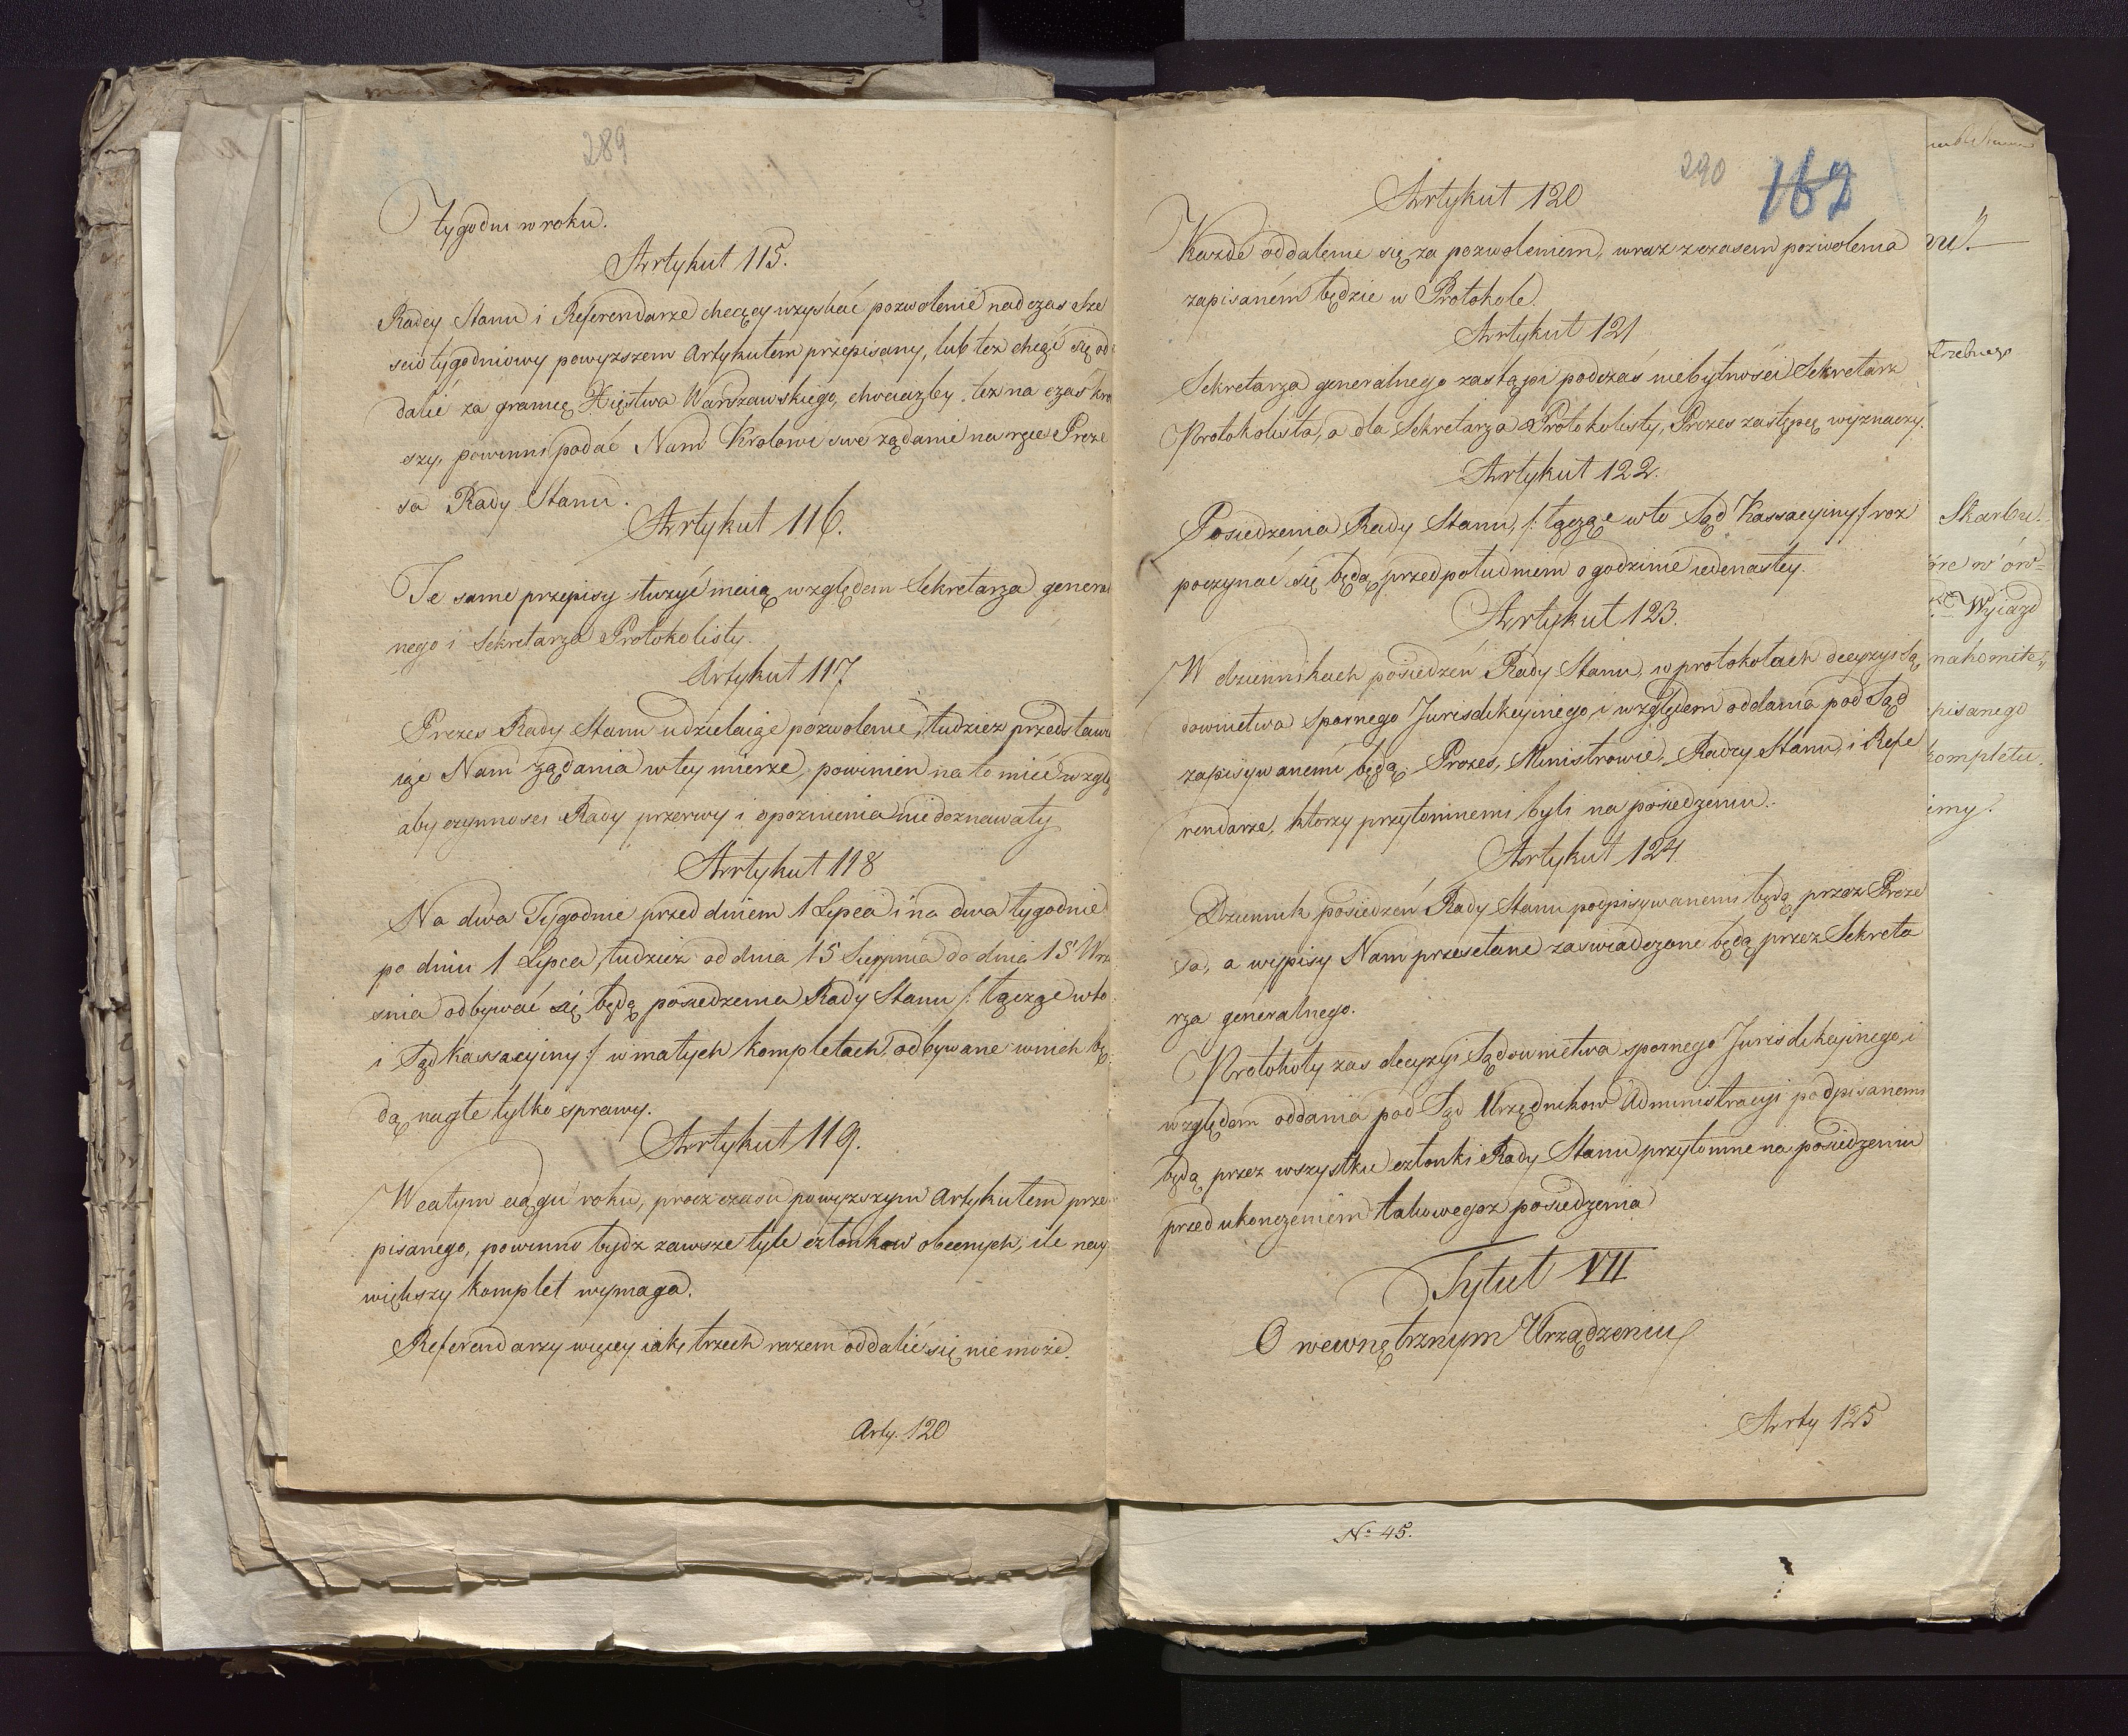 289
tygodni w roku.
Artykuł 115.
Radcy Stanu i Referendarze chcący uzyskać pozwolenie nad czas sze
ścio tygodniowy powyższem Artykułem przepisany, lub też chcąć się od
dalić za granicę Xięstwa Warszawskiego, chociażby też na czas kro
szy, powinni podać Nam Królowi swe żądanie na ręce Preze
sa Rady Stanu.
Artykuł 116.
Te same przepisy służyć maią względem Sekretarza general
nego i Sekretarza Protokolisty.
Artykuł 117
Prezes Rady Stanu udzielaiąc pozwolenie, tudzież przedstawi
iąc Nam żądania w tey mierze, powinien na to mieć wzglę
aby czynności Rady przerwy i opoznienia nie doznawały
Artykuł 118
Na dwa Tygodnie przed dniem 1 Lipca i na dwa tygodnie
po dniu 1 Lipca, tudzież od dnia 15 Sierpnia do dnia 15 Wrz
śnia odbywać się będą posiedzenia Rady Stanu /: łącząc w to
i Sąd Kassacyiny :/ w małych kompletach, odbywane w nich bę
dą nagłe tylko sprawy.
Artykuł 119.
W całym ciągu roku, procz czasu powyższym Artykułem prze
pisanego, powinno bydź zawsze tyle członkow obecnych, ile nay
większy komplet wymaga.
Referendarzy więcey iak trzech razem oddalić się nie może.
Arty. 120
290 162
Artykuł 120
Każde oddalenie się za pozwoleniem, wraz z czasem pozwolenia
zapisaném będzie w Protokole.
Artykuł 121
Sekretarza generalnego zastąpi podczas niebytności Sekretarz
Protokolista, a dla Sekretarza Protokolisty, Prezes zastępcę wyznaczy.
Artykuł 122.
Posiedzenia Rady Stanu, /: łącząc w to Sąd Kassacyiny :/ roz
poczynać się będą przed południem o godzinie iedenastey.
Artykuł 123.
W dziennikach posiedzeń Rady Stanu, w protokołach decyzyi Są
downictwa spornego Jurisdikcyinego, i względem oddania pod Sąd
zapisywanemi będą Prezes, Ministrowie, Radcy Stanu, i Refe
rendarze, ktorzy przytomnemi byli na posiedzeniu.
Artykuł 124.
Dziennik posiedzeń Rady Stanu podpisywanemi będą przez Preze
sa, a wypisy Nam przesełane zaświadczone będą przez Sekreta
rza generalnego.
Protokoły zas decyzyi Sądownictwa spornego Jurisdikcyinego, i
względem oddania pod Sąd Urzędnikow Administracyi podpisanemi
będą przez wszystkie członki Rady Stanu przytomne na posiedzeniu
przed ukończeniem takowegoż posiedzenia
Tytuł VII
O wewnętrznym Urządzeniu
Arty 125
trzebnego
Skarbu.
Wyiazd
nakomite
pisanego
kompletu.
No 45.